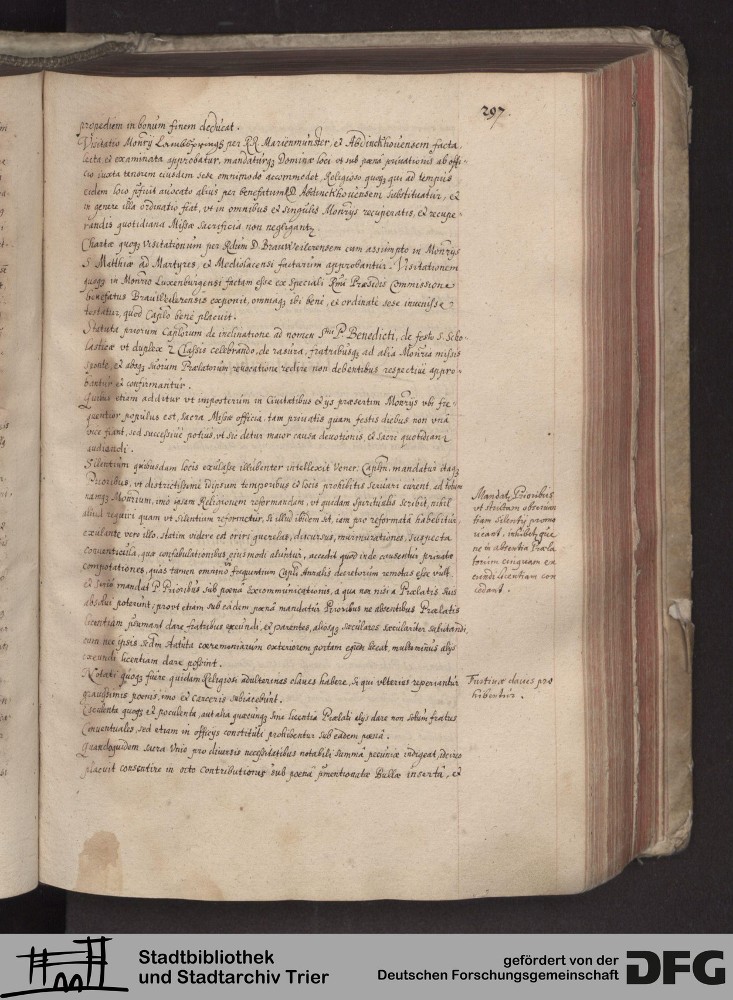 297.
propediem in bonum finem deducat.
Visitatio Monrÿ per RR. Marienmunster, et Abdinckhouensem facta,
lecta et examinata approbatur, mandaturq Dominæ loci vt sub pœna priuationis ab offi-
cio iuxta tenorem eiusdem sese omnimode accommodet, Religioso quoq qui ad tempus
eidem loco præfuit auocato alius per benefatum RD Abdinckhouensem substituatur, et
in genere illa ordinatio fiat, vt in omnibus et singulis Monrÿs recuperatis, et recupe-
randis quotidiana Missæ sacrificia non negligantr.
Chartæ quoq visitationum per Rdum D. Brauweilerensem cum assumpto in Monrÿs
S. Matthiæ ad Martyres, et Mediolacensi factarum approbantur. Visitationem
quoq in Monrio Luxenburgensi factam esse ex speciali Rmi Præsidis Commissione
benefatus Brauwilerensis exponit, omniaq ibi bene, et ordinate sese inuenisse
testatur, quod Caplo bene placuit.
Statuta priorum Caplorum de inclinatione ad nomen Smi P. Benedicti, de festo S. Scho-
lasticæ vt duplex 2 Classis celebrando, de rasura, fratribusq ad alia Monria missis
sponte, et absq suorum Prælatorum reuocatione redire non debentibus respectiue appro-
bantur et confirmantur.
Quibus etiam additur vt imposterum in Ciuitatibus et ÿs præsertim Monrÿs vbi fre-
quentior populus est, sacra Missæ officia, tam priuatis quam festis diebus non vna
vice fiant, sed successiue potius, vt sic detur maior causa deuotionis, et sacri quotidiani
audiendi.
Silentium quibusdam locis exulasse illubenter intellexit Vener. Caplm, mandatur itaq
Prioribus, vt districtissime idipsum temporibus et locis prohibitis seruari curent, ad totum
namq Monrium, imo ipsam Religionem reformandam, vt quidam spiritualis scribit, nihil
aliud requiri quam vt silentium reformetur, si illud ibidem sit, iam pro reformata habebitur,
exulante vero illo, statim videre est oriri querelas, discursus, murmurationes, suspecta
conuenticula, quæ confabulationibus eiusmodi aluntur, accedit quod inde causentur priuatæ
compotationes, quas tamen omnino frequentium Capli Annalis decretorum remotas esse vult.
Et serio mandat P Prioribus sub pœna Excommunicationis, a qua non nisi a Prælatis suis
absolui poterunt, prout etiam sub eadem pœna mandatur Prioribus ne absentibus Prælatis
licentiam præsumant dare fratribus exeundi, et parentes, aliosq seculares sæculariter salutandi,
cum nec ipsis scdm statuta cæremoniarum exteriorem portam egredi liceat, multo minus alÿs
exeundi licentiam dare possint.
Notati quoq fuere quidam Religiosi adulterinas claues habere, si qui vlterius reperiantur
grauissimis pœnis, imo et carceris subiacebunt.
Esculenta quoq et poculenta, aut alia quæcunq sine licentia Prælati alÿs dare non solum fratres
Conuentuales, sed etiam in officÿs constituti prohibentur sub eadem pœna.
Quandoquidem sacra Vnio pro diuersis necessitatibus notabili summa pecuniæ indigeat, idcirco
placuit consentire in octo contributiones sub pœna præmentionatæ Bullæ inserta, et
Mandat Prioribus
vt strictam obseruan
tiam silentÿ promo
ueant, inhibetq
ne in absentia Præla
torum cuiquam ex
eundi licentiam con
cedant.
Furtiuæ claues pro
hibentur.
Stadtbibliothek
und Stadtarchiv Trier
gefördert von der
Deutschen Forschungsgemeinschaft
DFG